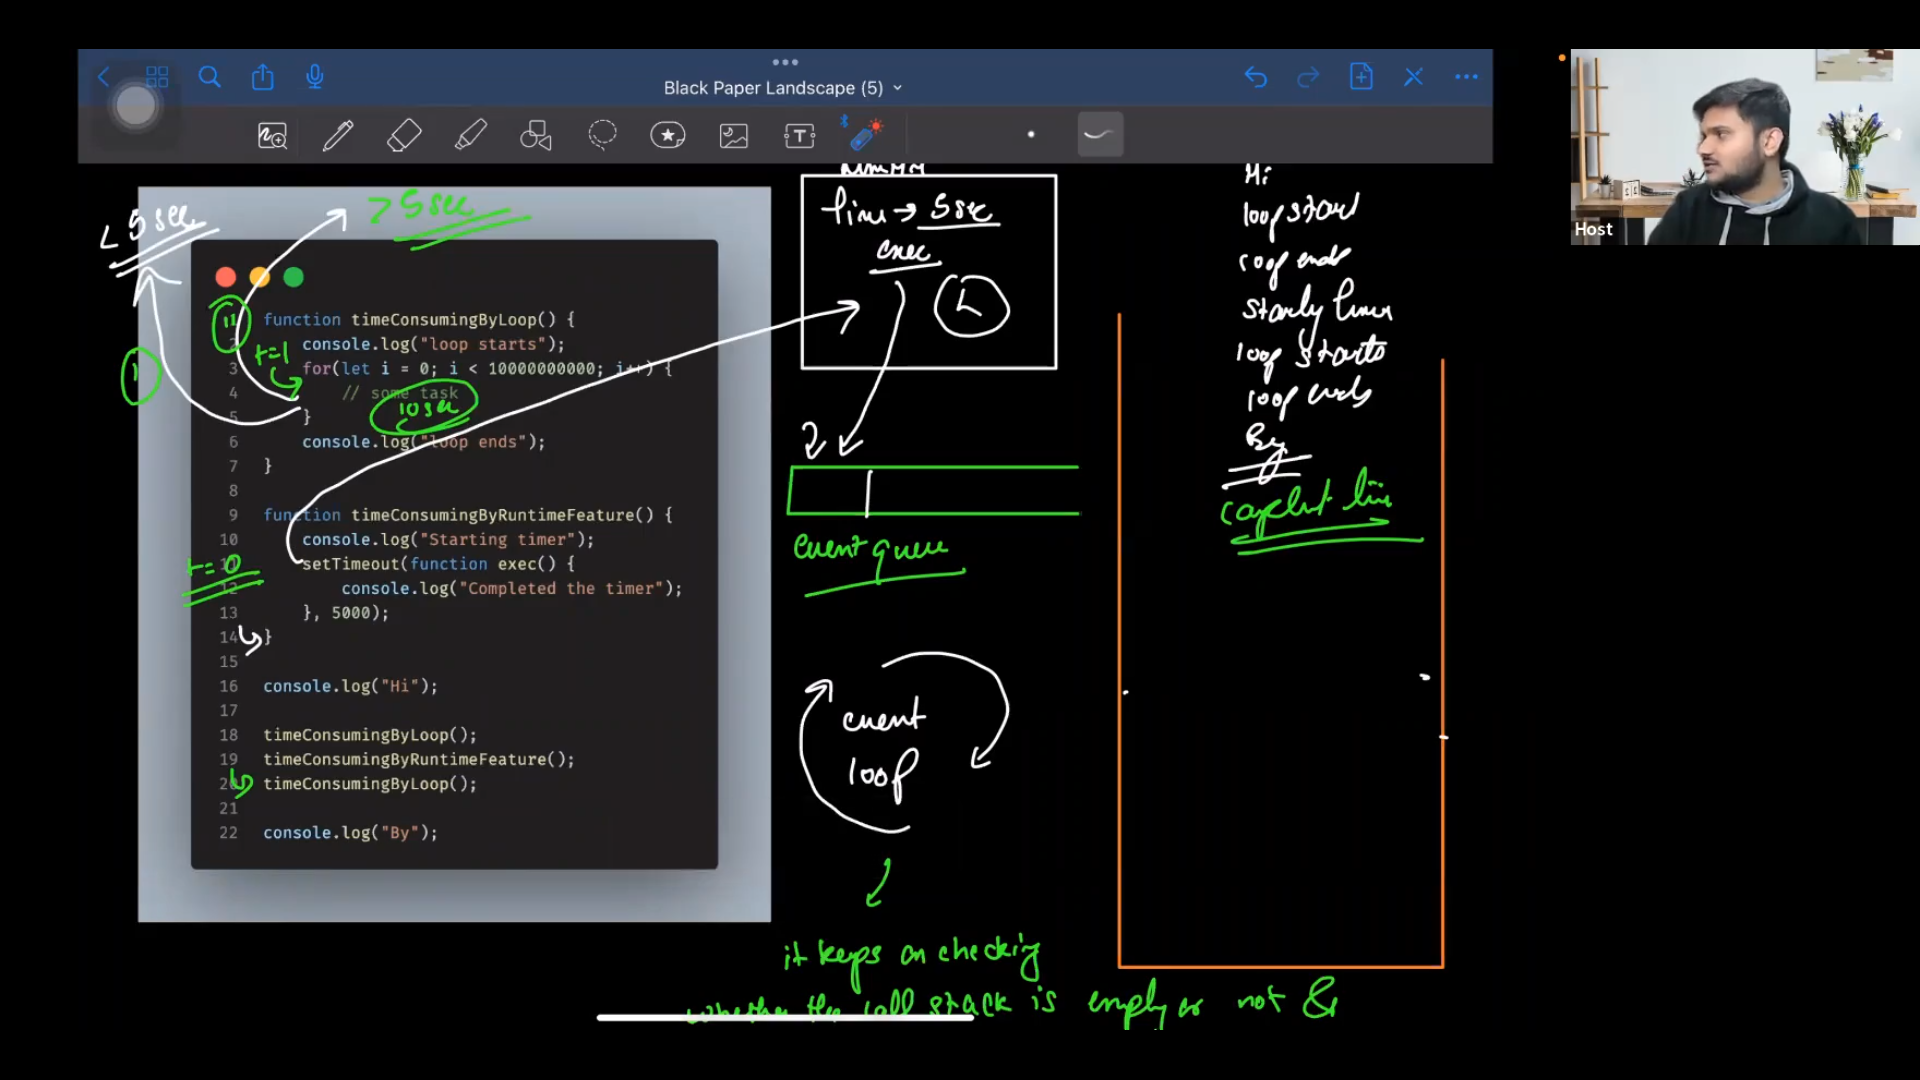 Black Paper Landscape (5)
Host
< 5 sec
> 5 sec
function timeConsumingByLoop() {
2 console.log("loop starts");
t=1
3 for(let i = 0; i < 10000000000; i++) {
4 // some task
10 sec
5 }
6 console.log("loop ends");
7 }
8
9 function timeConsumingByRuntimeFeature() {
10 console.log("Starting timer");
t=0
11 setTimeout(function exec() {
12 console.log("Completed the timer");
13 }, 5000);
14 }
15
16 console.log("Hi");
17
18 timeConsumingByLoop();
19 timeConsumingByRuntimeFeature();
20 timeConsumingByLoop();
21
22 console.log("By");
5 sec
exec
event queue
event
loop
it keeps on checking
whether the call stack is empty or not &
Hi
loop start
loop ends
loop starts
loop ends
By